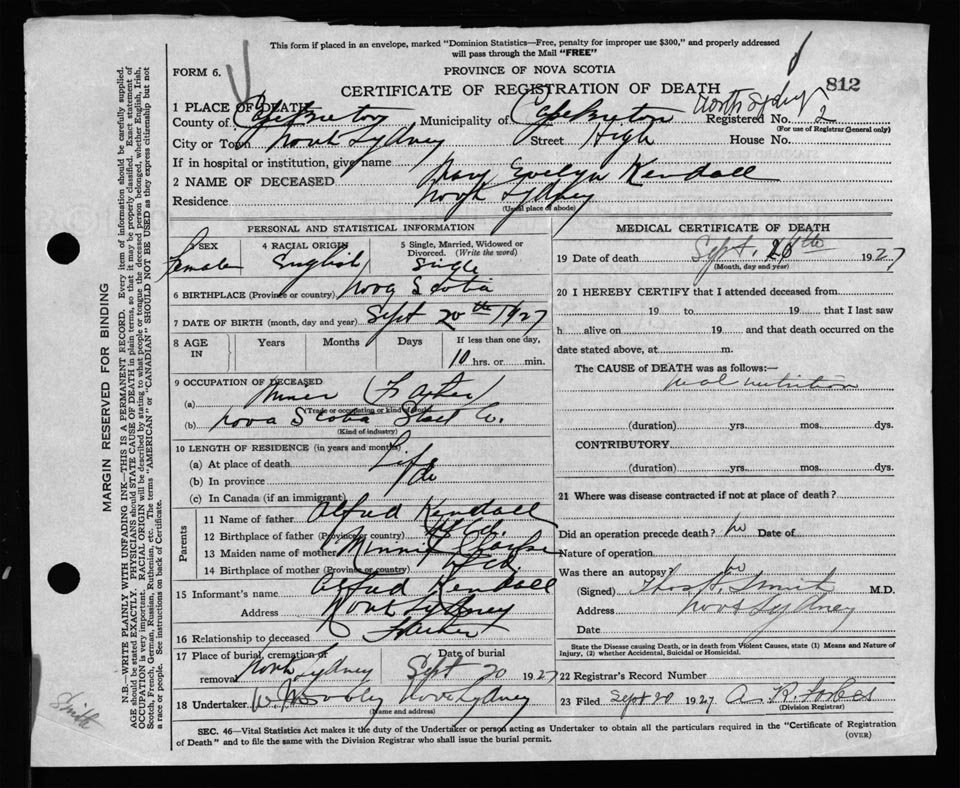 This form if placed in an envelope, marked "Dominion Statistics—Free, penalty for improper use $300," and properly addressed
will pass through the Mail "FREE"
FORM 6.
PROVINCE OF NOVA SCOTIA
CERTIFICATE OF REGISTRATION OF DEATH
812
1 PLACE OF DEATH
North Sydney
County of Cape Breton Municipality of Cape Breton Registered No. 2
(For use of Registrar General only)
City or Town North Sydney Street High House No.
If in hospital or institution, give name
2 NAME OF DECEASED Mary Evelyn Kendall
Residence North Sydney
(Usual place of abode)
PERSONAL AND STATISTICAL INFORMATION
3 SEX Female
4 RACIAL ORIGIN English
5 Single, Married, Widowed or
Divorced. (Write the word)
Single
6 BIRTHPLACE (Province or country) Nova Scotia
7 DATE OF BIRTH (month, day and year) Sept 20th 1927
8 AGE IN Years Months Days If less than one day,
10 hrs. or min.
9 OCCUPATION OF DECEASED
(a) Miner (Father)
(Trade or occupation or kind of work)
(b) Nova Scotia Steel Co.
(Kind of industry)
10 LENGTH OF RESIDENCE (in years and months)
(a) At place of death Life
(b) In province do
(c) In Canada (if an immigrant)
Parents
11 Name of father Alfred Kendall
12 Birthplace of father (Province or country) Nfld.
13 Maiden name of mother Minnie
14 Birthplace of mother (Province or country) Nfld
15 Informant's name Alfred Kendall
Address North Sydney
16 Relationship to deceased Father
17 Place of burial, cremation or
removal North Sydney
Date of burial
Sept 20 1927
18 Undertaker North Sydney
(Name and address)
MEDICAL CERTIFICATE OF DEATH
19 Date of death Sept. 1927
(Month, day and year)
20 I HEREBY CERTIFY that I attended deceased from
19 to 19 that I last saw
h alive on 19 and that death occurred on the
date stated above, at m.
The CAUSE of DEATH was as follows:—
Mal nutrition
(duration) yrs. mos. dys.
CONTRIBUTORY.
(duration) yrs. mos. dys.
21 Where was disease contracted if not at place of death?
Did an operation precede death? No Date of
Nature of operation
Was there an autopsy? No
(Signed) Thos. H. Smith M.D.
Address North Sydney
Date
State the Disease causing Death, or in death from Violent Causes, state (1) Means and Nature of
Injury, (2) whether Accidental, Suicidal or Homicidal.
22 Registrar's Record Number
23 Filed Sept 20 1927 A. R. Forbes
(Division Registrar)
SEC. 46—Vital Statistics Act makes it the duty of the Undertaker or person acting as Undertaker to obtain all the particulars required in the "Certificate of Registration
of Death" and to file the same with the Division Registrar who shall issue the burial permit.
(OVER)
MARGIN RESERVED FOR BINDING
N.B.—WRITE PLAINLY WITH UNFADING INK—THIS IS A PERMANENT RECORD. Every item of information should be carefully supplied.
AGE should be stated EXACTLY. PHYSICIANS should STATE CAUSE OF DEATH in plain terms, so that it may be properly classified. Exact statement of
OCCUPATION is very important. RACIAL ORIGIN will be described by stating to what people or tongue the deceased person belonged, whether English, Irish,
Scotch, French, German, Russian, Ruthenian, etc. The terms "AMERICAN" or "CANADIAN" SHOULD NOT BE USED as they express citizenship but not
a race or people. See instructions on back of Certificate.
Smith